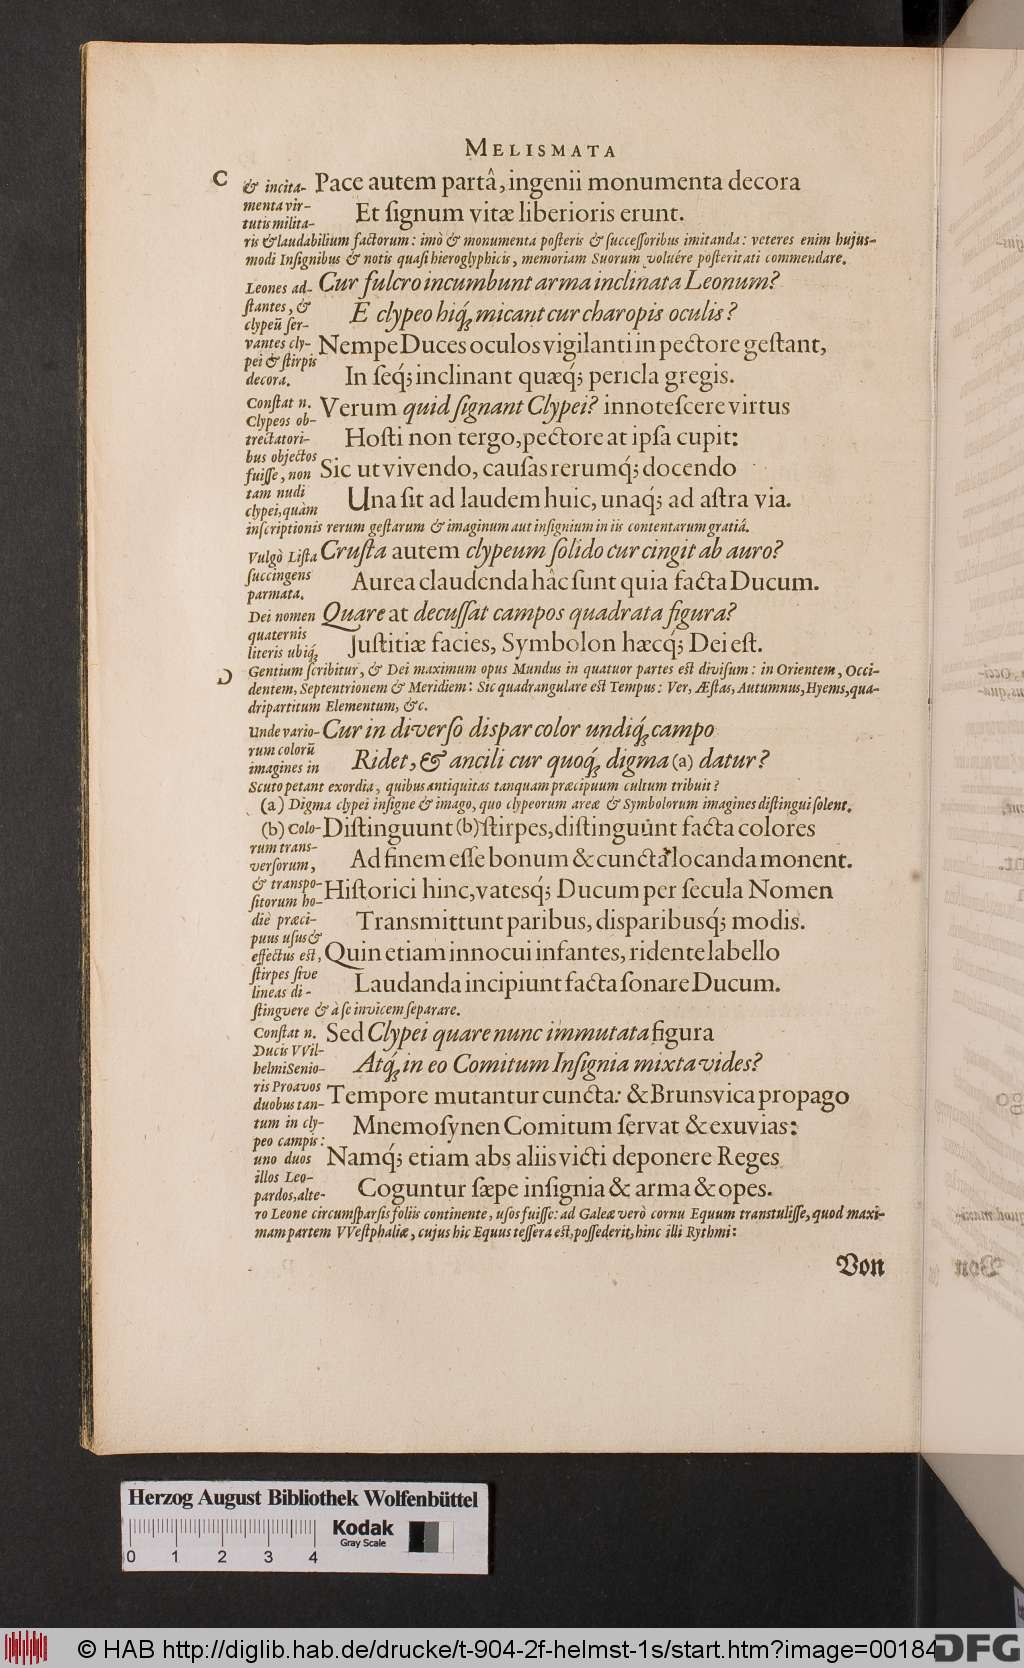 MELISMATA
C
& incita-
menta vir-
tutis milita-
Pace autem partâ, ingenii monumenta decora
Et ſignum vitæ liberioris erunt.
ris & laudabilium factorum: imò & monumenta poſteris & ſucceſſoribus imitanda: veteres enim hujus-
modi Inſignibus & notis quaſi hieroglyphicis, memoriam Suorum voluêre poſteritati commendare.
Leones ad-
ſtantes, &
clypeũ ſer-
vantes cly-
pei & ſtirpis
decora.
Cur fulcro incumbunt arma inclinata Leonum?
E clypeo hiq́; micant cur charopis oculis?
Nempe Duces oculos vigilanti in pectore geſtant,
In ſeq́; inclinant quæq́; pericla gregis.
Conſtat n.
Clypeos ob-
trectatori-
bus objectos
fuiſſe, non
tam nudi
clypei, quàm
Verum quid ſignant Clypei? innoteſcere virtus
Hoſti non tergo, pectore at ipſa cupit:
Sic ut vivendo, cauſas rerumq́; docendo
Una ſit ad laudem huic, unaq́; ad aſtra via.
inſcriptionis rerum geſtarum & imaginum aut inſignium in iis contentarum gratiâ.
Vulgò Liſta
ſuccingens
parmata.
Cruſta autem clypeum ſolido cur cingit ab auro?
Aurea claudenda hâc ſunt quia facta Ducum.
Dei nomen
quaternis
literis ubiq́;
Quare at decuſſat campos quadrata figura?
Juſtitiæ facies, Symbolon hæcq́; Dei eſt.
D
Gentium ſcribitur, & Dei maximum opus Mundus in quatuor partes eſt diviſum: in Orientem, Occi-
dentem, Septentrionem & Meridiem: Sic quadrangulare eſt Tempus: Ver, Æſtas, Autumnus, Hyems, qua-
dripartitum Elementum, &c.
Unde vario-
rum colorũ
imagines in
Cur in diverſo diſpar color undiq́; campo
Ridet, & ancili cur quoq́; digma (a) datur?
Scuto petant exordia, quibus antiquitas tanquam præcipuum cultum tribuit?
(a) Digma clypei inſigne & imago, quo clypeorum areæ & Symbolorum imagines diſtingui ſolent.
(b) Colo-
rum trans-
verſorum,
& tranſpo-
ſitorum ho-
diè præci-
puus uſus &
effectus eſt,
ſtirpes ſive
lineas di-
Diſtinguunt (b) ſtirpes, diſtinguunt facta colores
Ad finem eſſe bonum & cuncta locanda monent.
Hiſtorici hinc, vatesq́; Ducum per ſecula Nomen
Transmittunt paribus, disparibusq́; modis.
Quin etiam innocui infantes, ridente labello
Laudanda incipiunt facta ſonare Ducum.
ſtinguere & à ſe invicem ſeparare.
Conſtat n.
Ducis VVil-
helmi Senio-
ris Proavos
duobus tan-
tum in cly-
peo campis:
uno duos
illos Leo-
pardos, alte-
Sed Clypei quare nunc immutata figura
Atq́; in eo Comitum Inſignia mixta vides?
Tempore mutantur cuncta: & Brunsvica propago
Mnemoſynen Comitum ſervat & exuvias:
Namq́; etiam abs aliis victi deponere Reges
Coguntur ſæpe inſignia & arma & opes.
ro Leone circumſparſis foliis continente, uſos fuiſſe: ad Galeæ verò cornu Equum tranſtuliſſe, quod maxi-
mam partem VVeſtphaliæ, cujus hic Equus teſſera eſt, poſſederit, hinc illi Rythmi:
Von
Herzog August Bibliothek Wolfenbüttel
Kodak
Gray Scale
0 1 2 3 4
© HAB http://diglib.hab.de/drucke/t-904-2f-helmst-1s/start.htm?image=00184
DFG